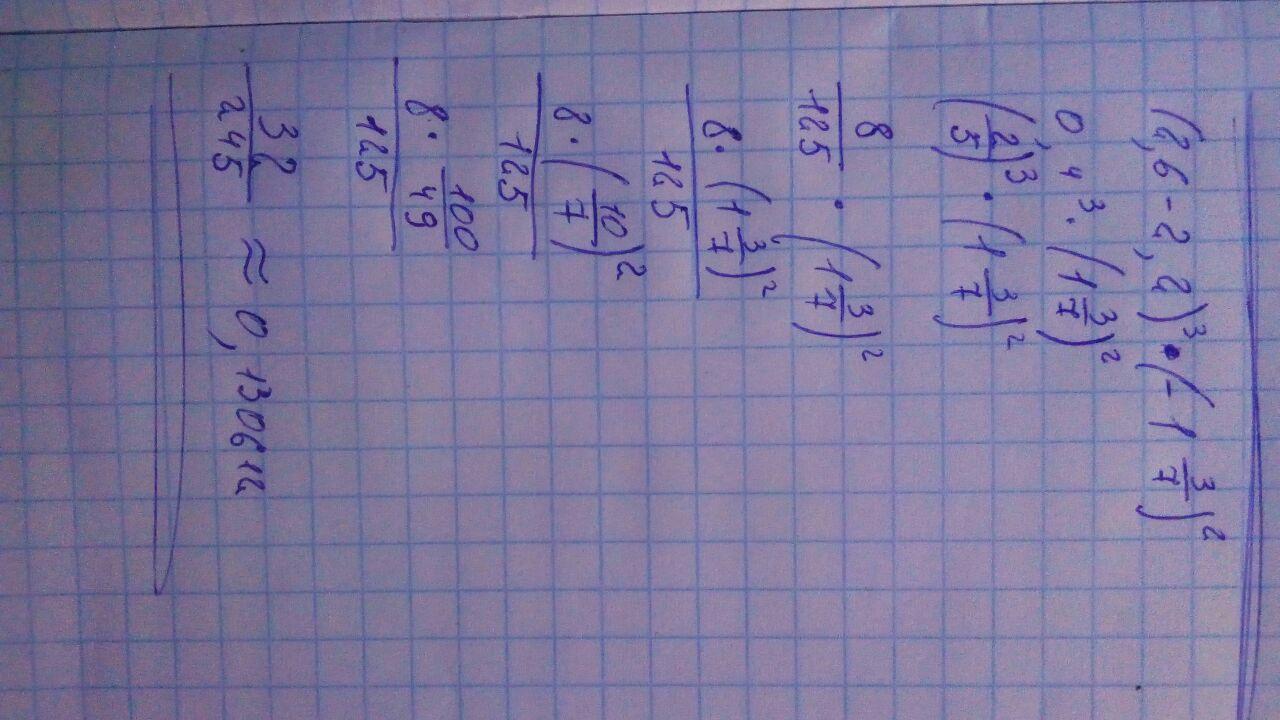 (2,6-2,2)³•(-1 3/7)²
0,4³·(1 3/7)²
(2/5)³·(1 3/7)²
8/125 · (1 3/7)²
8·(1 3/7)²/125
8·(10/7)²/125
8·100/49/125
32/245 ≈ 0,130612